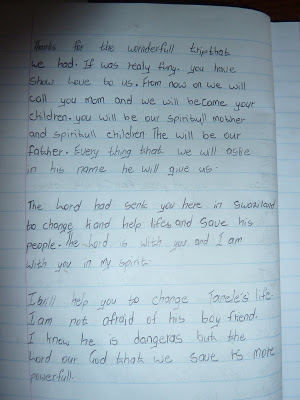 Thanks for the wonderfull trip that
we had. If was realy funy. you have
show love to us. From now on we will
call you mom and we will become your
children. you will be our spiritull mother
and spiritull children The will be our
father. Every thing that we will aske
in his name he will give us.
The Lord had sent you here in Swaziland
to change and help lifes and save his
people. The Lord is with you and I am
with you in my spirit.
I will help you to change Janele's life
I am not afraid of his boy friend.
I know he is dangeras but the
Lord our God that we save is more
powerfull.